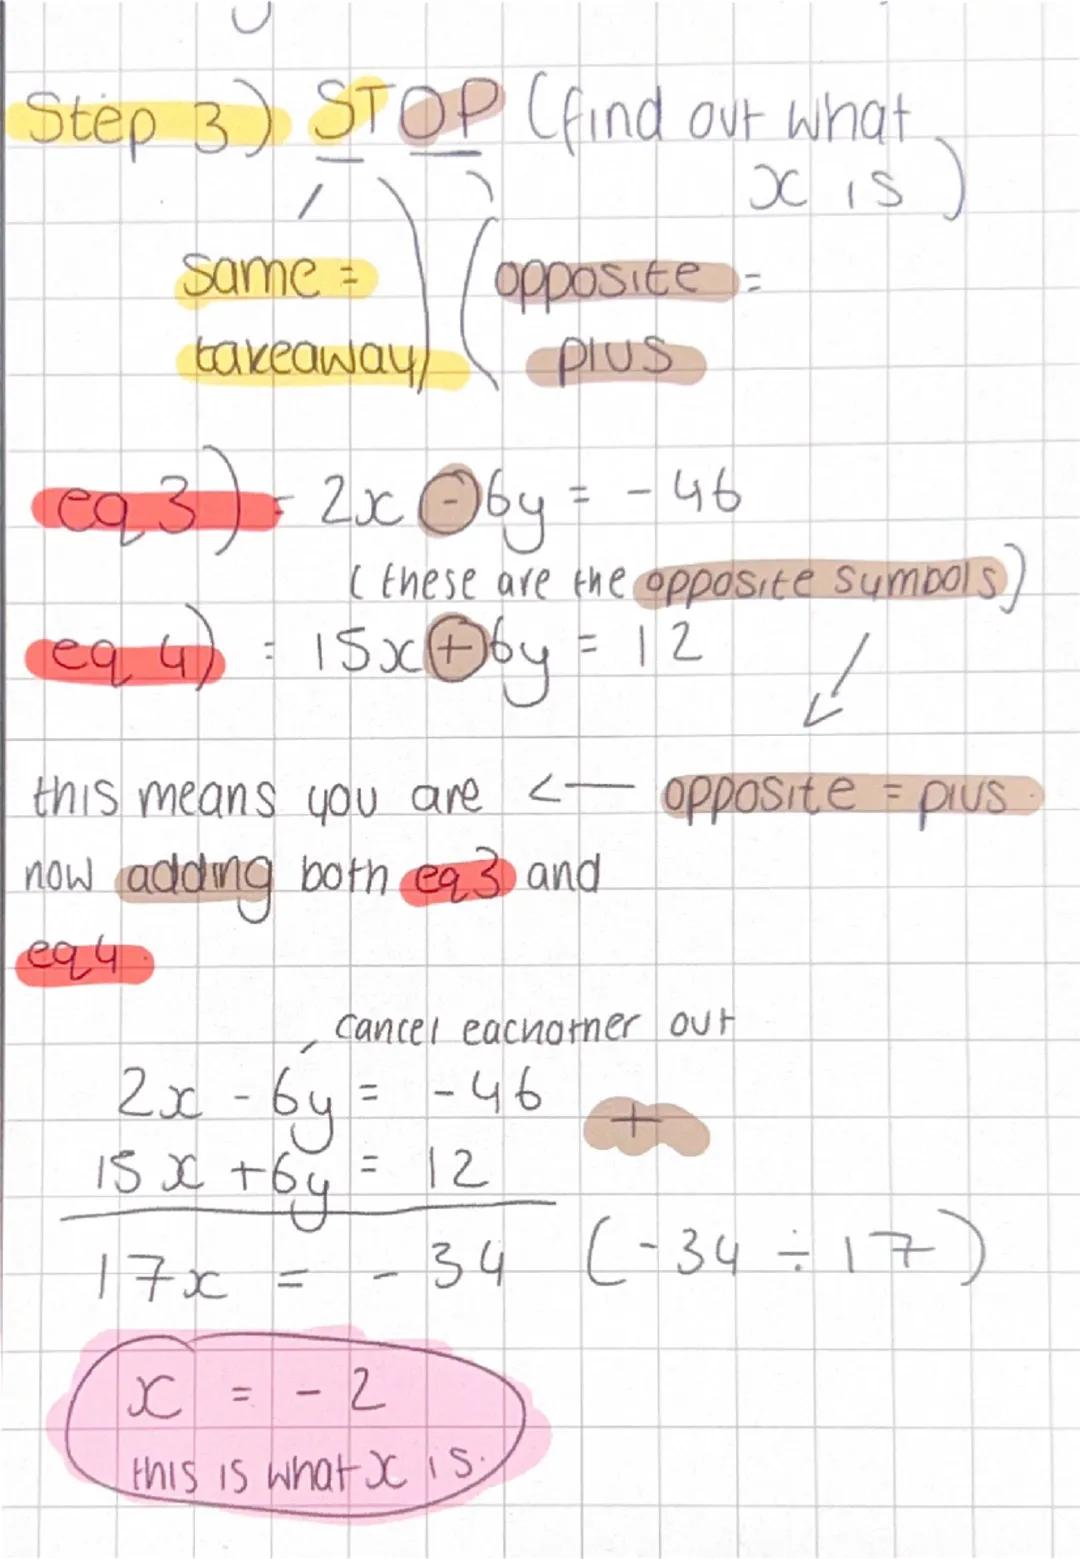 Step 3) STOP (find out what
x is)
same = opposite =
takeaway plus
eq 3) = 2x - 6y = - 46
(these are the opposite symbols)
eq 4) = 15x + 6y = 12
this means you are <— opposite = plus
now adding both eq3 and
eq4
cancel eachother out
2x - 6y = - 46
+
15x + 6y = 12
17x = - 34 (-34 ÷ 17)
x = - 2
this is what x is.